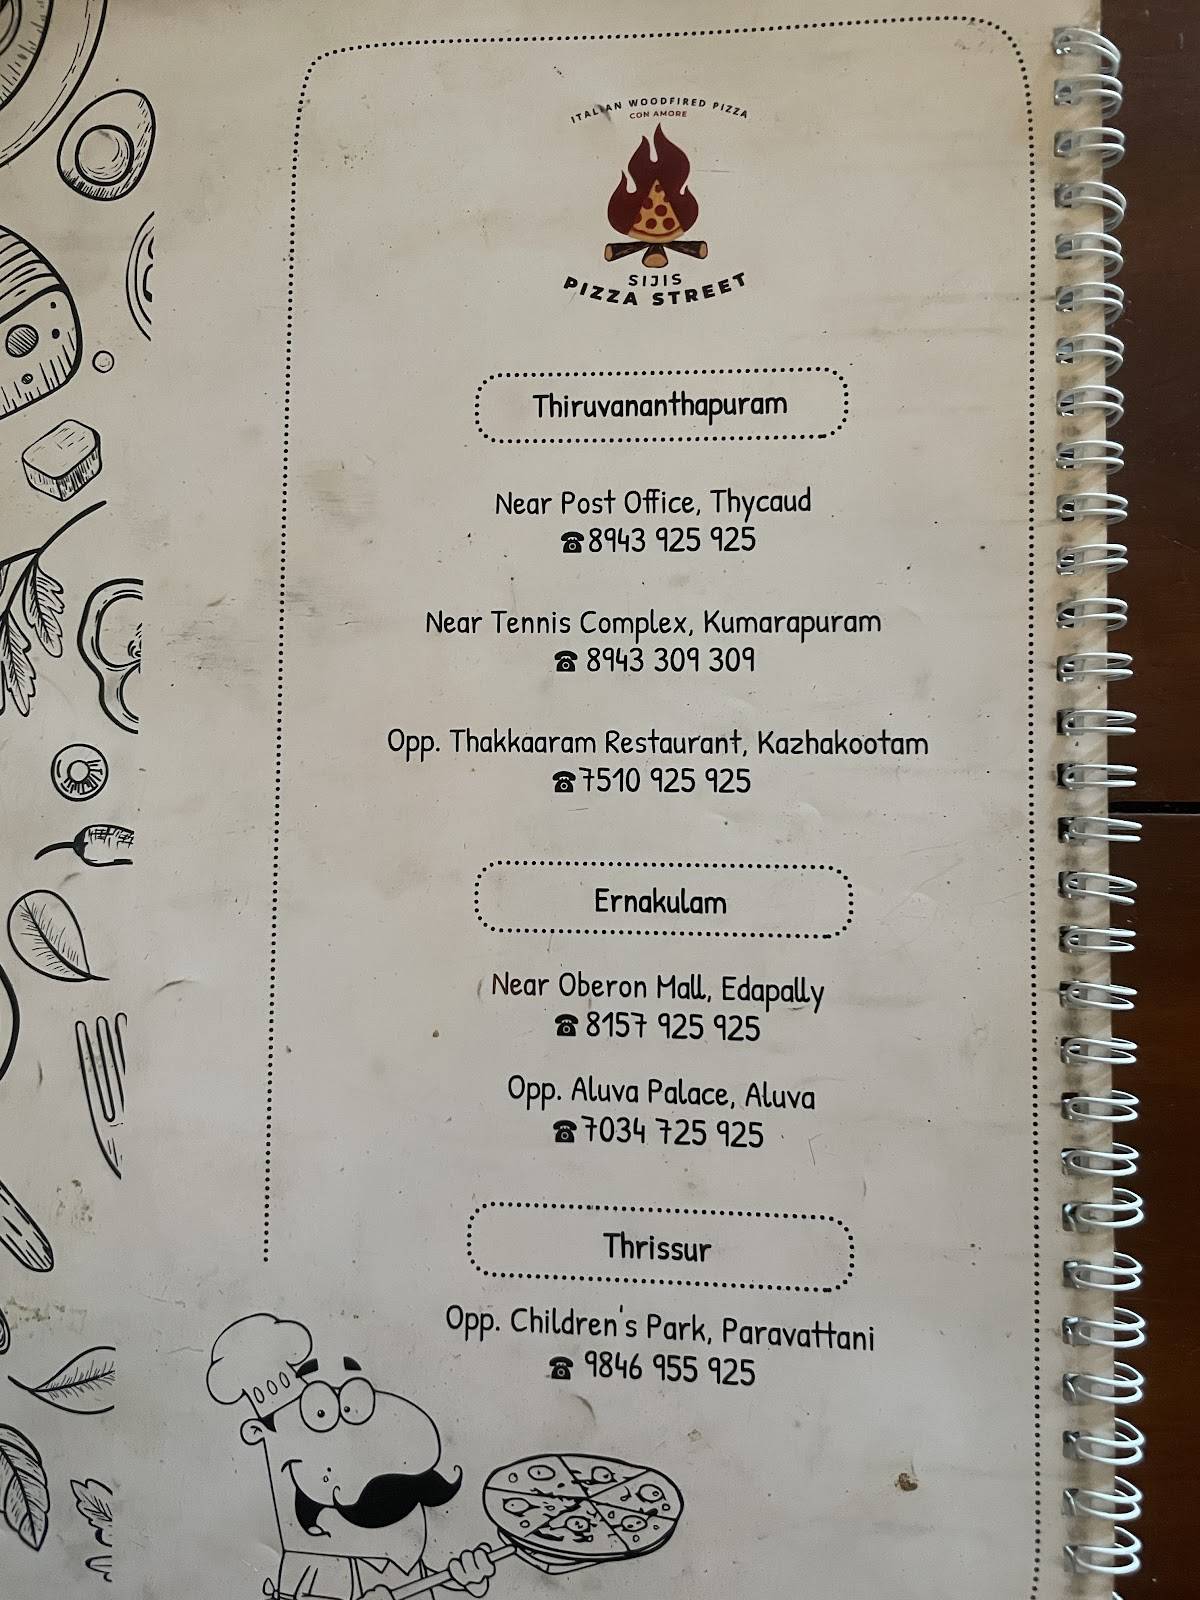 ITALIAN WOODFIRED PIZZA
CON AMORE
SIJIS
PIZZA STREET
Thiruvananthapuram
Near Post Office, Thycaud
☎8943 925 925
Near Tennis Complex, Kumarapuram
☎ 8943 309 309
Opp. Thakkaaram Restaurant, Kazhakootam
☎7510 925 925
Ernakulam
Near Oberon Mall, Edapally
☎ 8157 925 925
Opp. Aluva Palace, Aluva
☎7034 725 925
Thrissur
Opp. Children's Park, Paravattani
☎ 9846 955 925